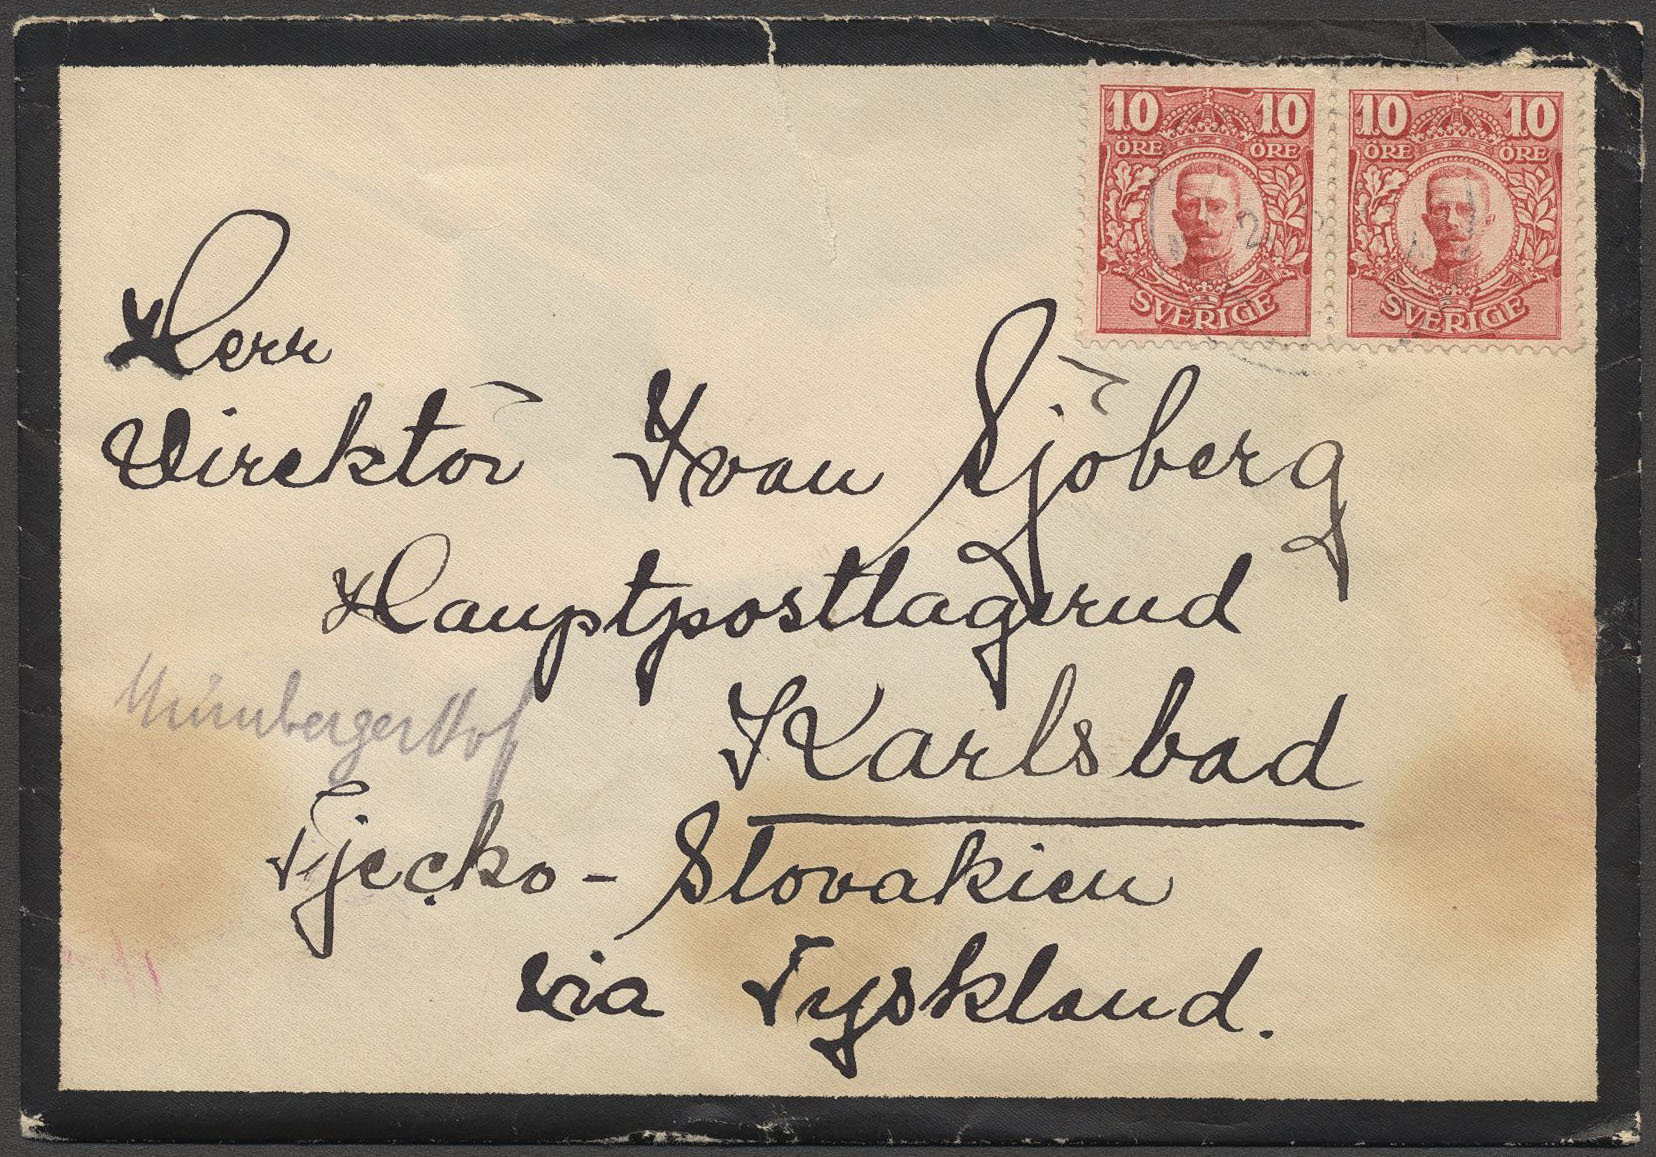 10 10
ÖRE ÖRE
SVERIGE
10 10
ÖRE ÖRE
SVERIGE
Herr
Direktör Ivan Sjöberg
Hauptpostlagerud
Karlsbad
NürnbergerHof
Tjecko-Slovakien
via Tyskland.